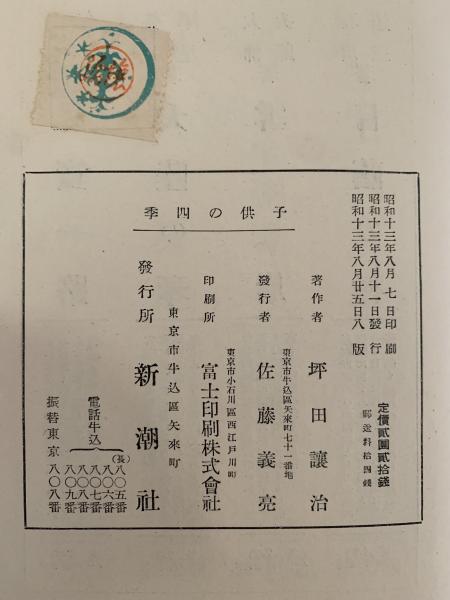 子供の四季
昭和十三年八月七日印刷
昭和十三年八月十一日發行
昭和十三年八月廿五日八版
定價貳圓貳拾錢
郵送料拾四錢
著作者 坪田讓治
東京市牛込區矢來町七十一番地
發行者 佐藤義亮
東京市小石川區西江戸川町
印刷所 富士印刷株式會社
東京市牛込區矢來町
發行所 新潮社
電話牛込
(長)八〇五番
八〇六番
八〇七番
八〇八番
八〇九番
振替東京八〇八番